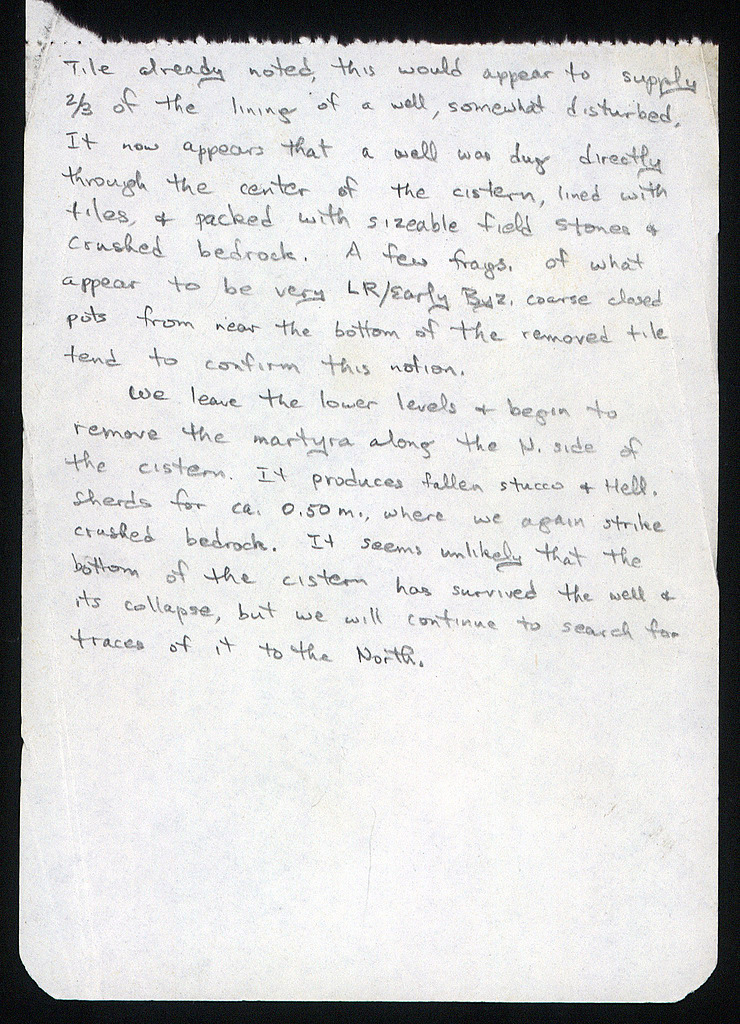 Tile already noted, this would appear to supply
2/3 of the lining of a well, somewhat disturbed.
It now appears that a well was dug directly
through the center of the cistern, lined with
tiles, & packed with sizeable field stones &
crushed bedrock. A few frags. of what
appear to be very LR/Early Byz. coarse closed
pots from near the bottom of the removed tile
tend to confirm this notion.
We leave the lower levels & begin to
remove the martyra along the N. side of
the cistern. It produces fallen stucco & Hell.
sherds for ca. 0.50 m., where we again strike
crushed bedrock. It seems unlikely that the
bottom of the cistern has survived the well &
its collapse, but we will continue to search for
traces of it to the North.